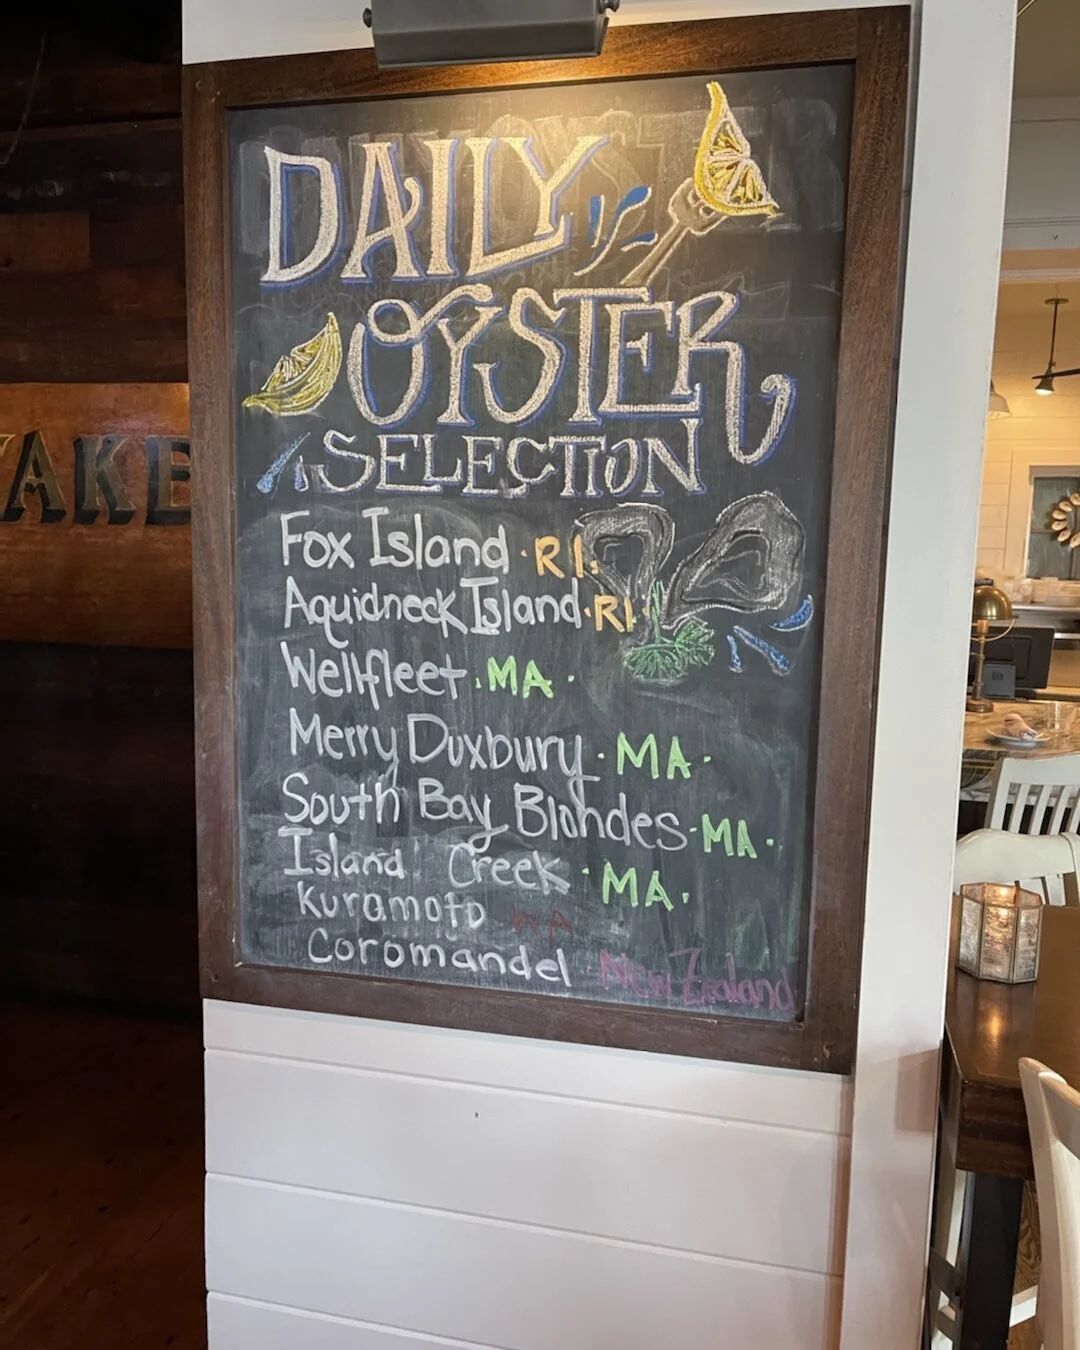 DAILY
OYSTER
SELECTION
Fox Island · RI.
Aquidneck Island · RI
Wellfleet · MA ·
Merry Duxbury · MA ·
South Bay Blondes · MA ·
Island Creek · MA.
Kuramoto WA
Coromandel New Zealand
AKE